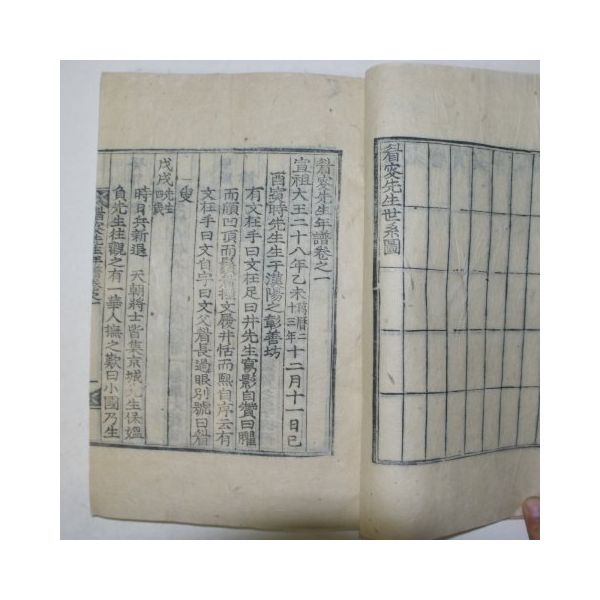 睂叜先生世系圖
睂叜先生年譜卷之一
宣祖大王二十八年乙未萬曆二十三年十二月十一日己
酉寅時先生生于漢陽之彰善坊
有文在手曰文在足曰井先生寫影自贊曰臞
而頎凹頂而鬚睂握文履井恬而熙自序云有
文在手曰文自字曰文父睂長過眼別號曰睂
叟
戊戌先生四歲
時日兵新退 天朝將士皆集京城先生保媼
負先生往觀之有一華人撫之歎曰小國乃生
睂叜先生年譜卷之一